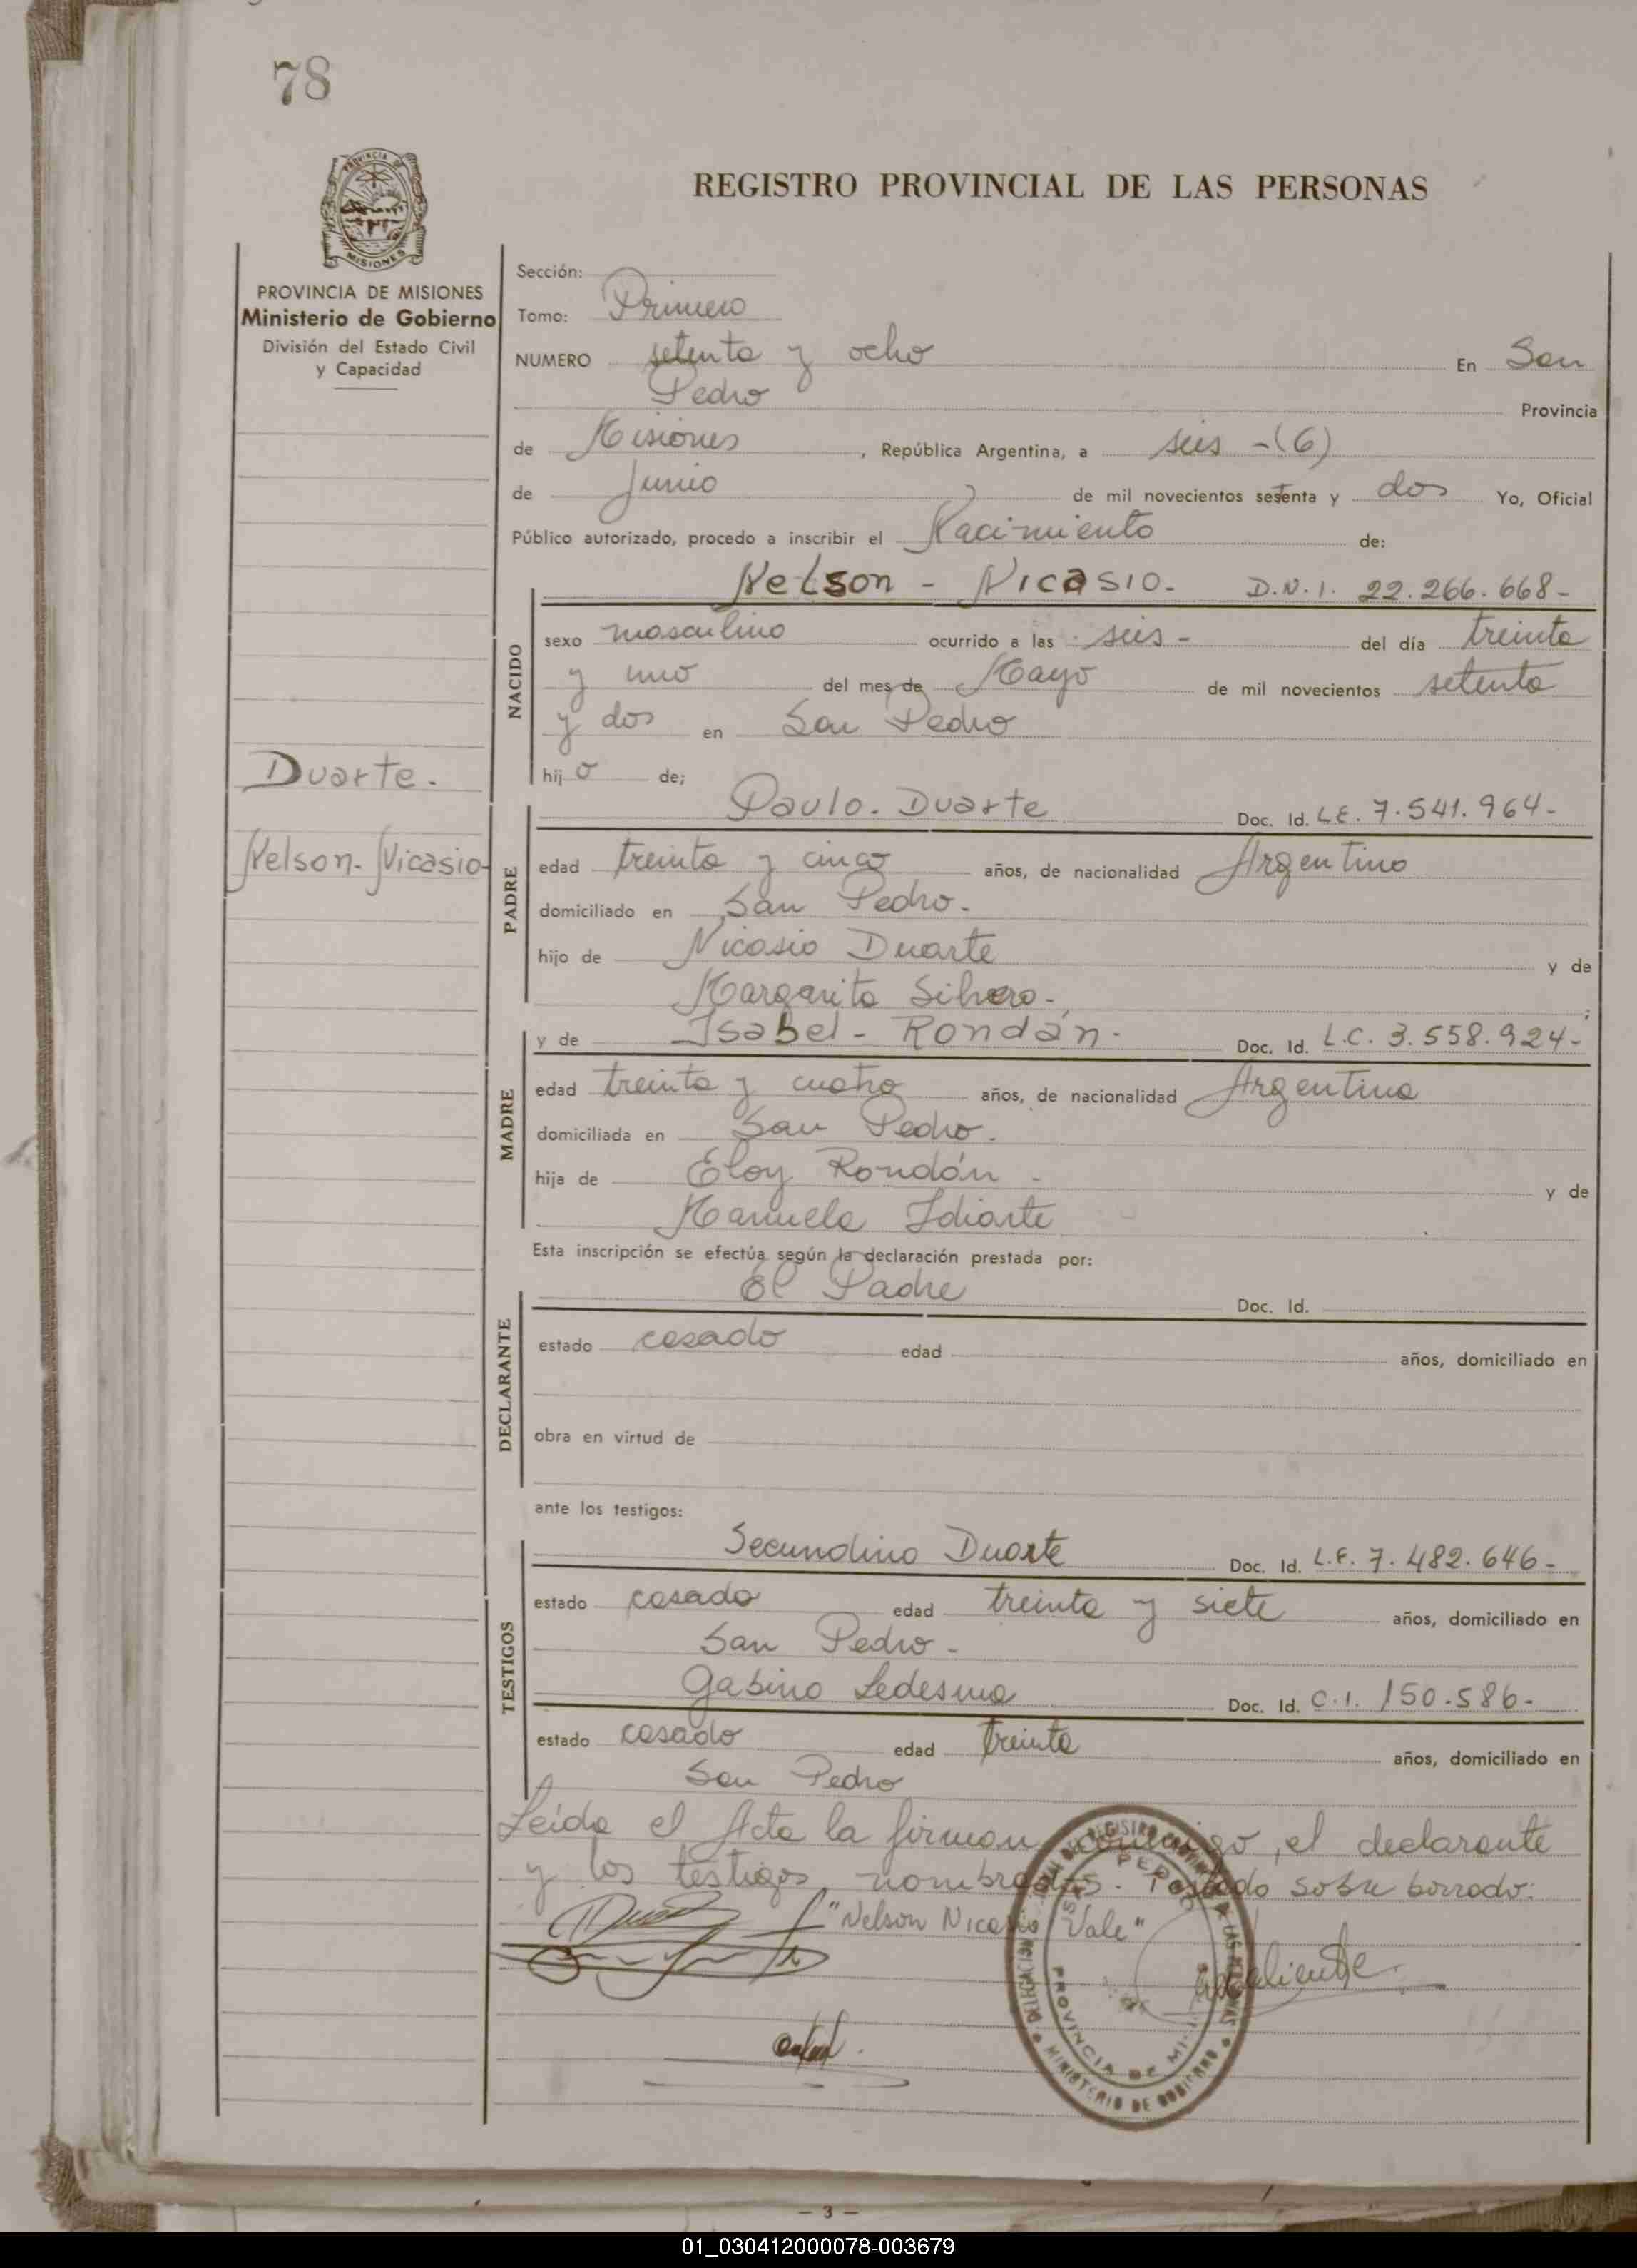 78
PROVINCIA DE
MISIONES
REGISTRO PROVINCIAL DE LAS PERSONAS
PROVINCIA DE MISIONES
Ministerio de Gobierno
División del Estado Civil
y Capacidad
Sección:
Tomo: Primero
NUMERO setenta y ocho En San
Pedro Provincia
de Misiones, República Argentina, a seis -(6)
de Junio de mil novecientos setenta y dos Yo, Oficial
Público autorizado, procedo a inscribir el Nacimiento de:
Nelson - Nicasio. D.N.I. 22.266.668-
NACIDO
sexo masculino ocurrido a las seis - del día treinta
y uno del mes de Mayo de mil novecientos setenta
y dos en San Pedro
hijo de;
Duarte.
Nelson-Nicasio-
Paulo. Duarte Doc. Id. L.E. 7.541.964-
PADRE
edad treinta y cinco años, de nacionalidad Argentino
domiciliado en San Pedro.
hijo de Nicasio Duarte y de
Margarita Silvero-;
y de Isabel - Rondán- Doc. Id. L.C. 3.558.924-
MADRE
edad treinta y cuatro años, de nacionalidad Argentina
domiciliada en San Pedro.
hija de Eloy Rondón - y de
Manuela Idiarte
Esta inscripción se efectúa según la declaración prestada por:
El Padre Doc. Id.
DECLARANTE
estado casado edad años, domiciliado en
obra en virtud de
ante los testigos:
Secundino Duarte Doc. Id. L.E. 7.482.646-
TESTIGOS
estado casado edad treinta y siete años, domiciliado en
San Pedro-
Gabino Ledesma Doc. Id. C.I. 150.586-
estado casado edad treinta años, domiciliado en
San Pedro
Leída el Acta la firman conmigo, el declarante
y los testigos nombrados. Testado sobre borrado:
"Nelson Nicasio Vale"
SAN PEDRO
PROVINCIA DE
MINISTERIO DE GOBIERNO
- 3 -
01_030412000078-003679